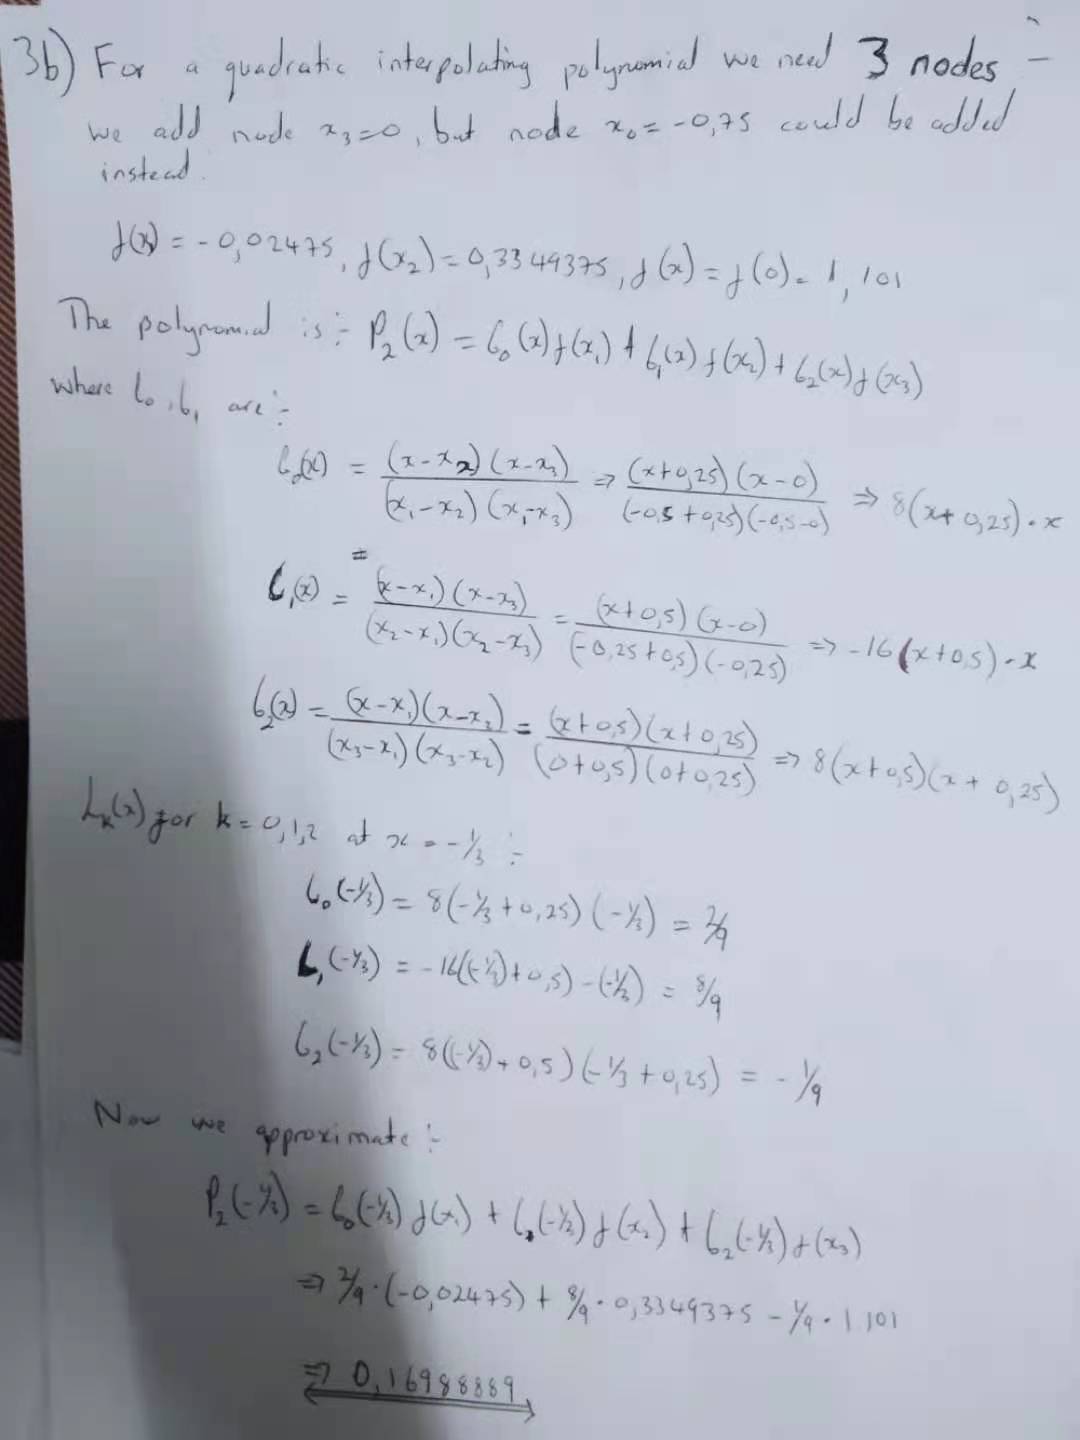 3b) For a quadratic interpolating polynomial we need 3 nodes –
we add node x₃=0, but node x₀ = -0,75 could be added
instead.
f(x₁) = -0,02475, f(x₂) = 0,3349375, f(x) = f(0) = 1,101
The polynomial is :- P₂(x) = L₀(x)f(x₁) + L₁(x)f(x₂) + L₂(x)f(x₃)
where L₀, L₁ are :-
L₀(x) = (x-x₂)(x-x₃) / (x₁-x₂)(x₁-x₃) ⇒ (x+0,25)(x-0) / (-0,5+0,25)(-0,5-0) ⇒ 8(x+0,25)·x
L₁(x) = (x-x₁)(x-x₃) / (x₂-x₁)(x₂-x₃) = (x+0,5)(x-0) / (-0,25+0,5)(-0,25) ⇒ -16(x+0,5)·x
L₂(x) = (x-x₁)(x-x₂) / (x₃-x₁)(x₃-x₂) = (x+0,5)(x+0,25) / (0+0,5)(0+0,25) ⇒ 8(x+0,5)(x+0,25)
Lₖ(x) for k = 0,1,2 at x = -1/3 :-
L₀(-1/3) = 8(-1/3+0,25)(-1/3) = 2/9
L₁(-1/3) = -16((-1/3)+0,5)-(-1/3) = 8/9
L₂(-1/3) = 8((-1/3)+0,5)(-1/3+0,25) = -1/9
Now we approximate :-
P₂(-1/3) = L₀(-1/3)f(x₁) + L₁(-1/3)f(x₂) + L₂(-1/3)f(x₃)
⇒ 2/9·(-0,02475) + 8/9·0,3349375 - 1/9·1,101
⇒ 0,16988889